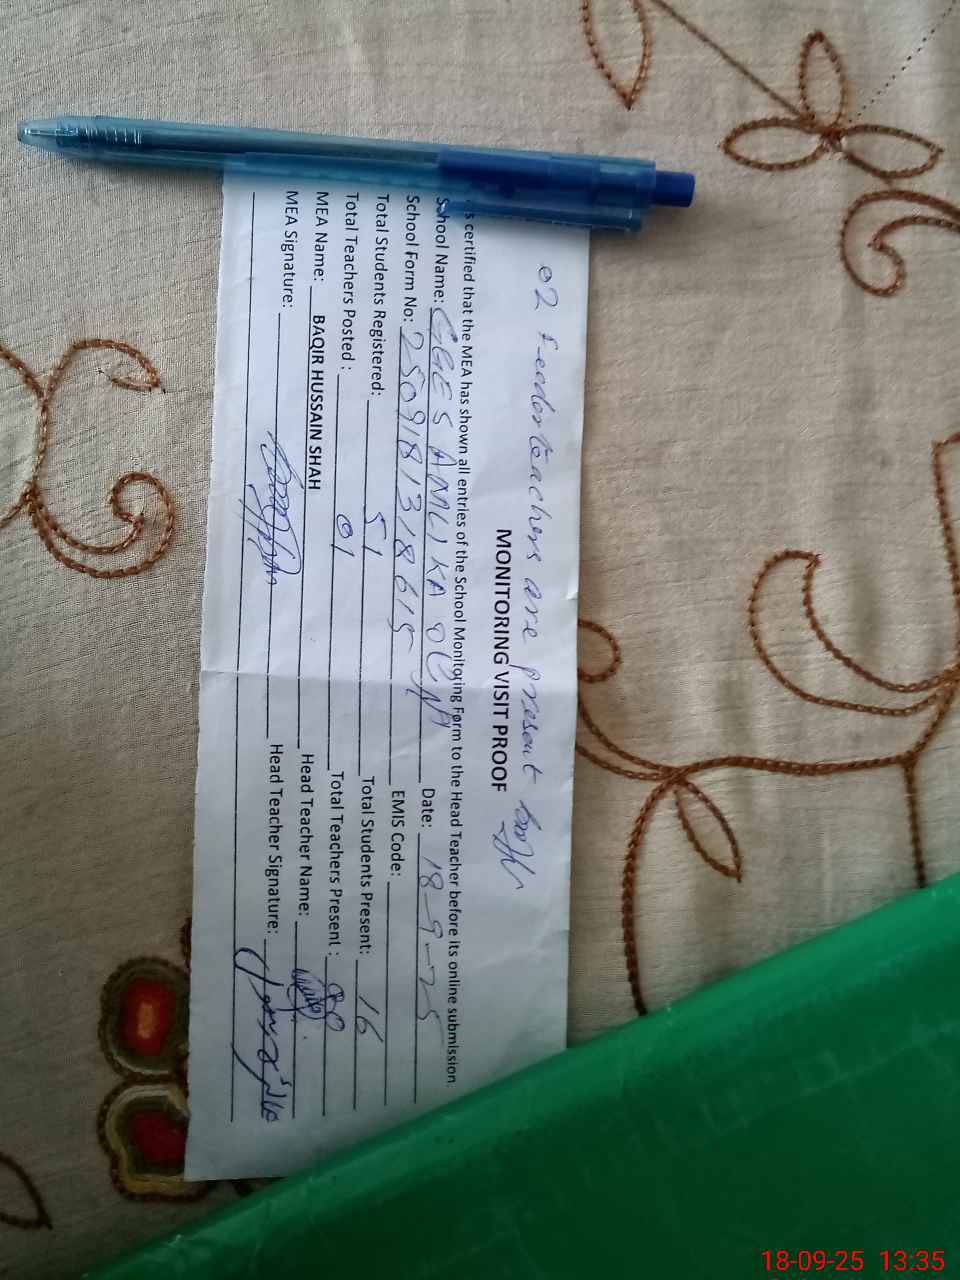 02 feeder teachers are present
MONITORING VISIT PROOF
is certified that the MEA has shown all entries of the School Monitoring Form to the Head Teacher before its online submission.
School Name: GGES AMLIKA Date: 18-9-25
School Form No: 2509181318615 EMIS Code:
Total Students Registered: 51 Total Students Present: 16
Total Teachers Posted : 01 Total Teachers Present :
MEA Name: BAQIR HUSSAIN SHAH Head Teacher Name:
MEA Signature: Head Teacher Signature:
18-09-25 13:35